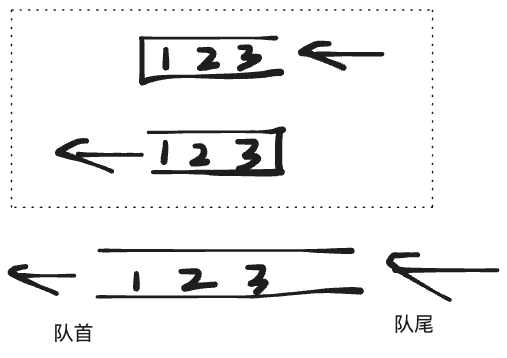 1 2 3
1 2 3
1 2 3
队首 队尾